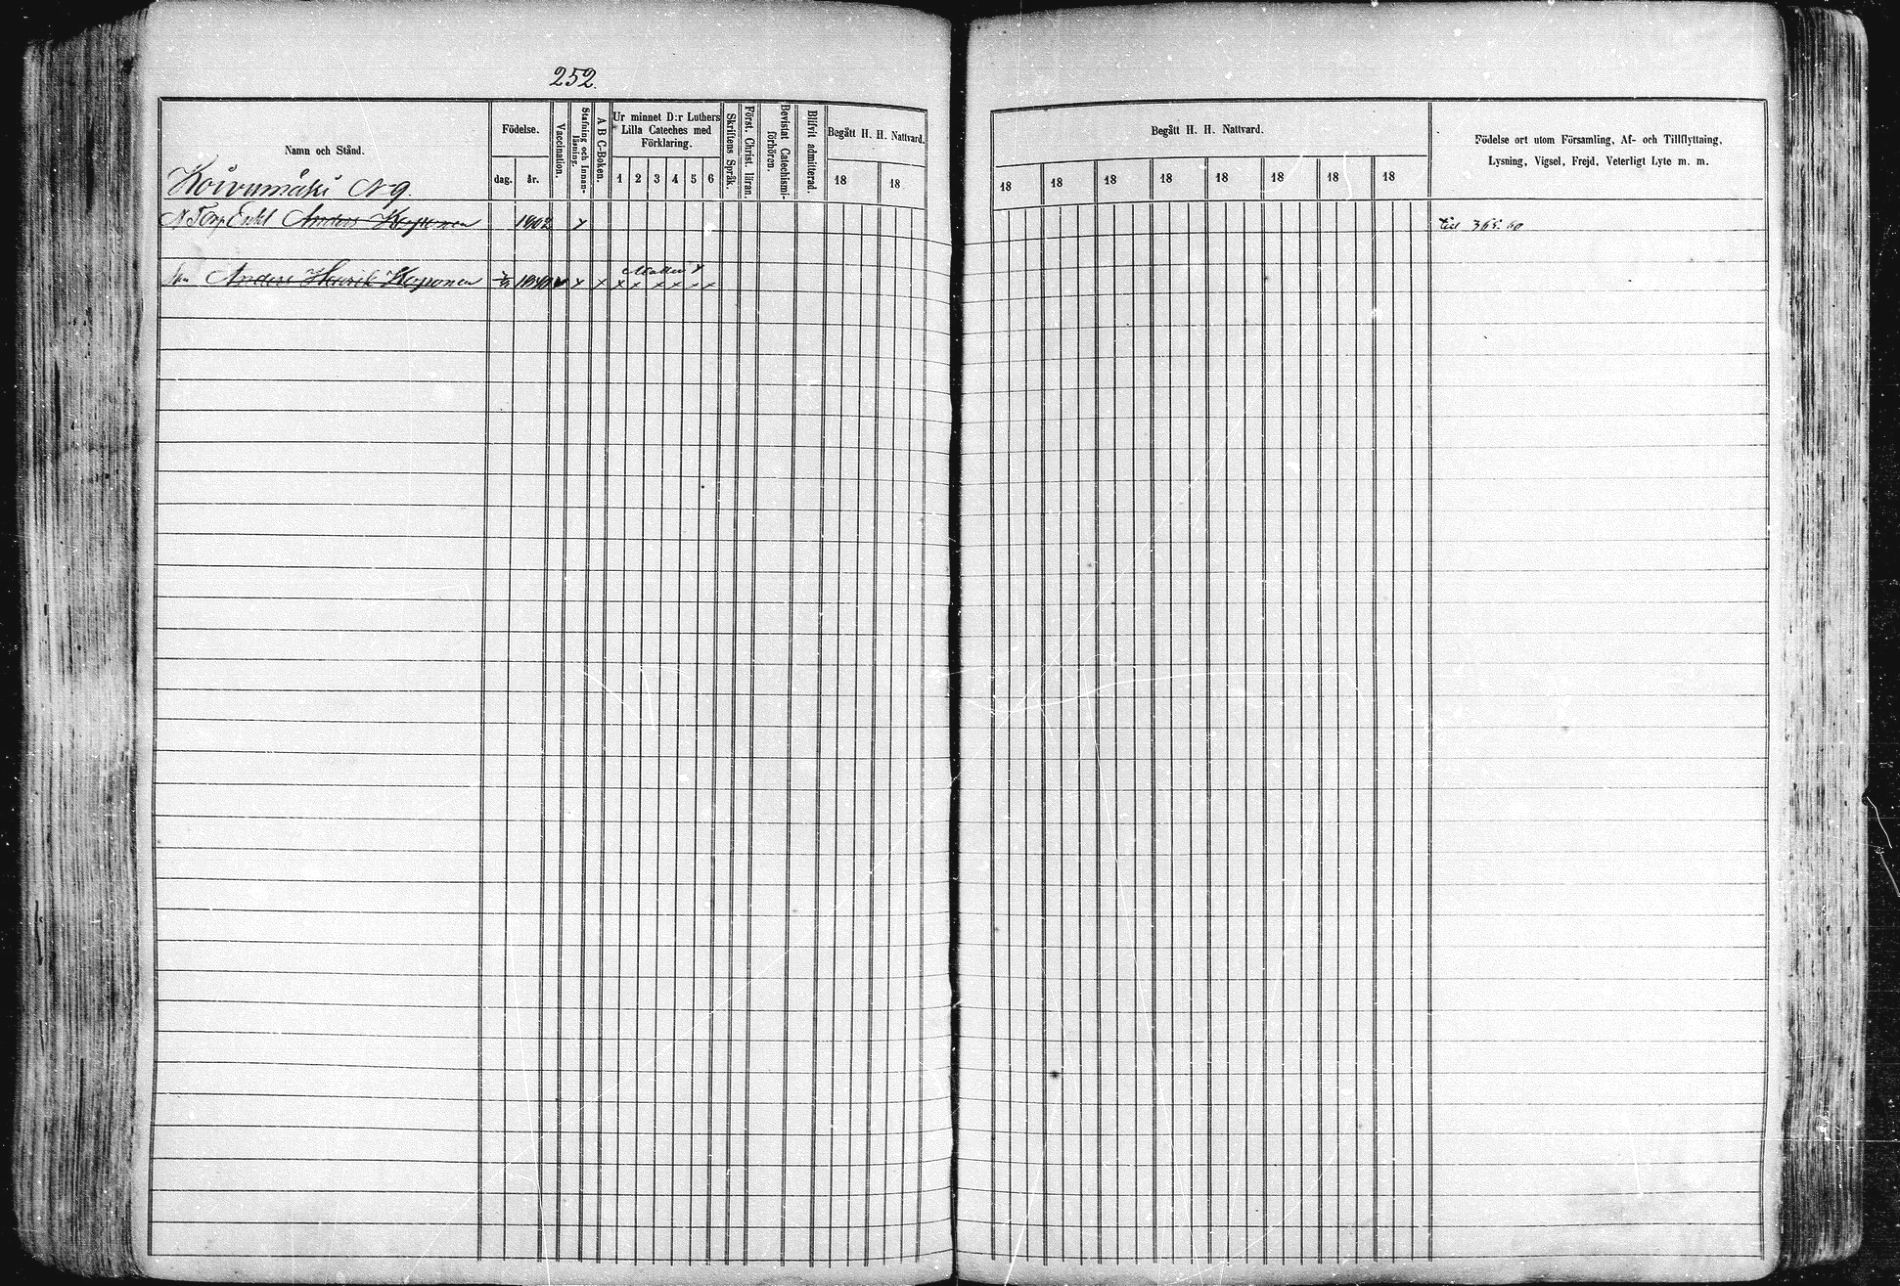 252.
Namn och Stånd.
Födelse.
dag.
år.
Vaccination.
Stafning och Innan-
läsning.
A B C-Boken.
Ur minnet D:r Luthers
Lilla Cateches med
Förklaring.
1 2 3 4 5 6
Skriftens Språk.
Först. Christ. läran
Bevistat Catechismi-
förhören.
Blifvit admitterad.
Begått H. H. Nattvard.
18 18
Begått H. H. Nattvard.
18 18 18 18 18 18 18 18
Födelse ort utom Församling, Af- och Tillflyttning,
Lysning, Vigsel, Frejd, Veterligt Lyte m. m.
Koivumäki N 9.
Torp Enkl Anders Koponen 1802 x till 365.60
Anders Henrik Koponen x x x x x x x x